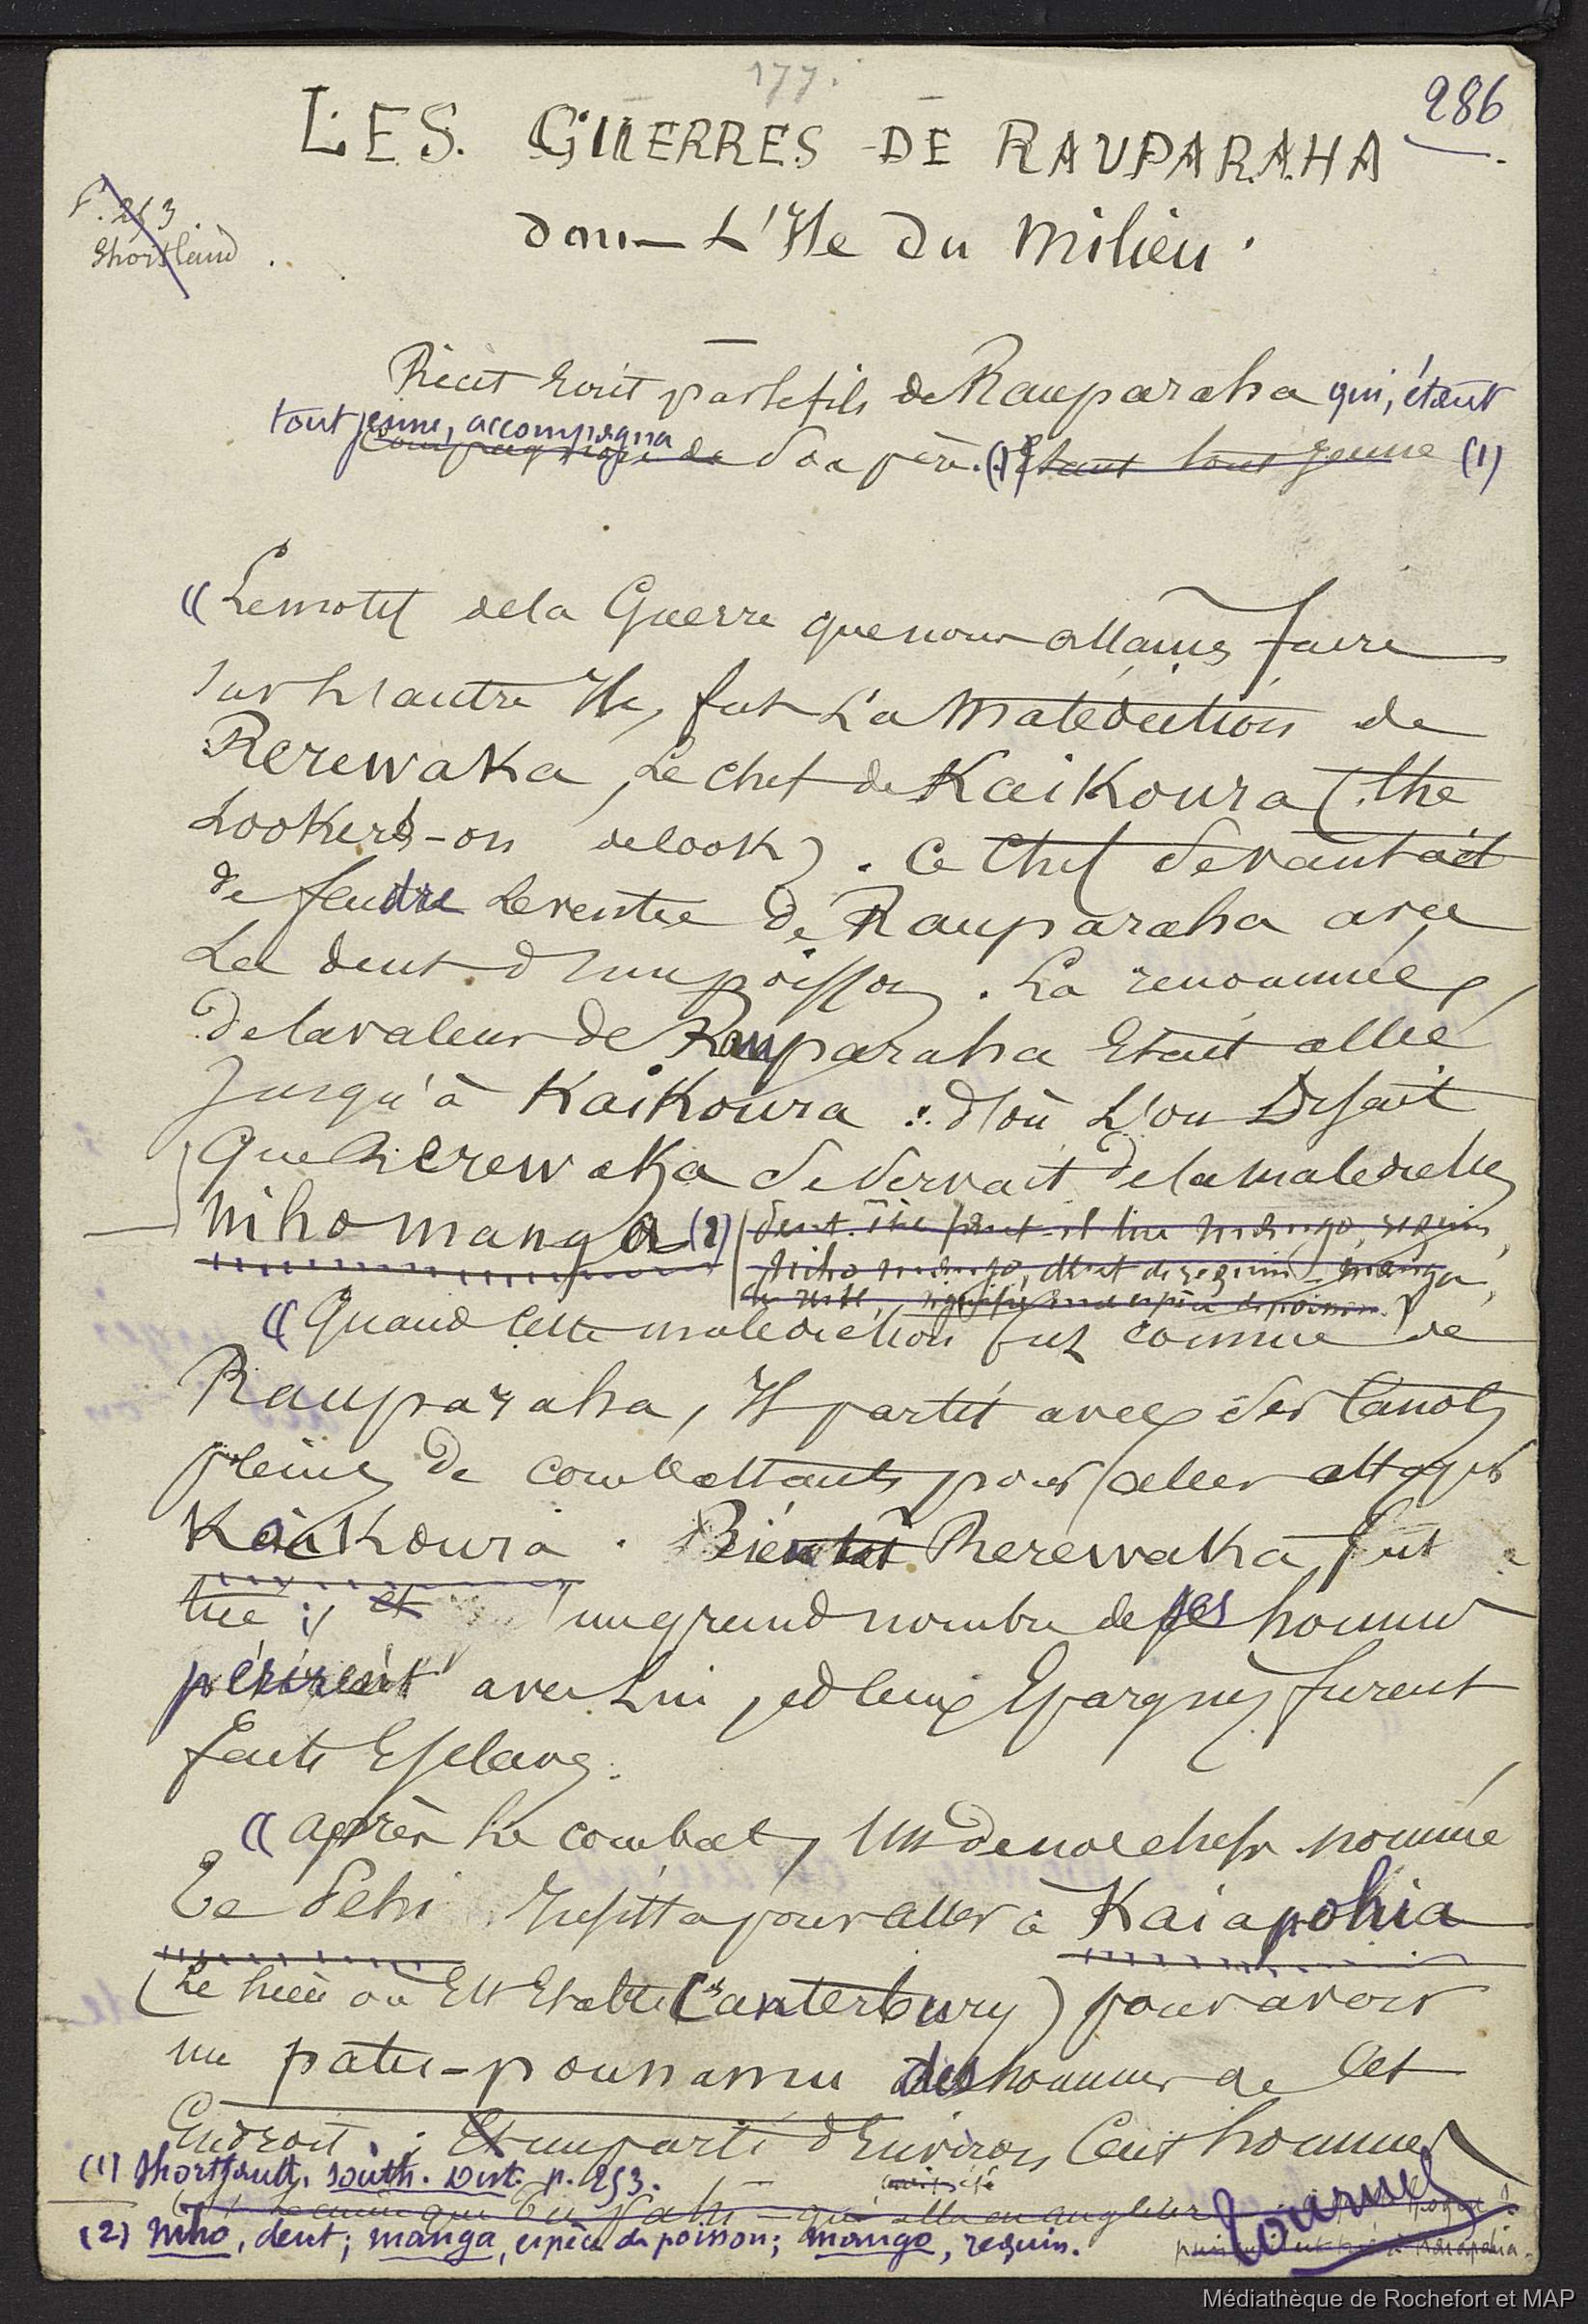 177.
286
LES GUERRES DE RAUPARAHA
dans L'Ile du Milieu.
P. 253
Shortland
Récit Ecrit par le fils de Rauparaha qui, étant
tout jeune, accompagna
son père. (1) Etant tout jeune (1)
« Le motif de la Guerre que nous allâmes faire
sur l'autre Ile, fut La Malédiction de
Rerewaka, Le chef de KaiKoura (the
Lookers-on de Cook). Ce Chef se vantait
de fendre Le ventre de Rauparaha avec
La dent d'un poisson. La renommée
De la valeur de Rauparaha Etait allée
Jusqu'à KaiKoura : d'où L'on Disait
que Rerewaka se servait De la malédiction
niho manga (2) dent. Peut-il lire mango, requin,
niho mango, dent de requin. manga,
signifie une espèce de poisson.
« Quand cette malédiction fut connue de
Rauparaha, Il partit avec ses Canots
pleins De combattants pour aller attaquer
KaiKoura. Bientôt Rerewaka fut
tué ; et un grand nombre de ses hommes
périrent avec Lui, et ceux Epargnés furent
faits Esclaves.
« après Le combat, Un De nos chefs nommé
Te Pehi Insista pour aller à Kaiapohia
(Le lieu où Est Etabli Canterbury) pour avoir
un patu-pounamu des hommes de Cet
Endroit. ; Et un parti d'Environ Cent hommes
(1) Shortland. South. Dist. p. 253.
Te Pehi qui alla en angleterre
puis à Kaiapohia.
(2) Niho, dent; manga, espèce de poisson; mango, requin.
Tournez
Médiathèque de Rochefort et MAP